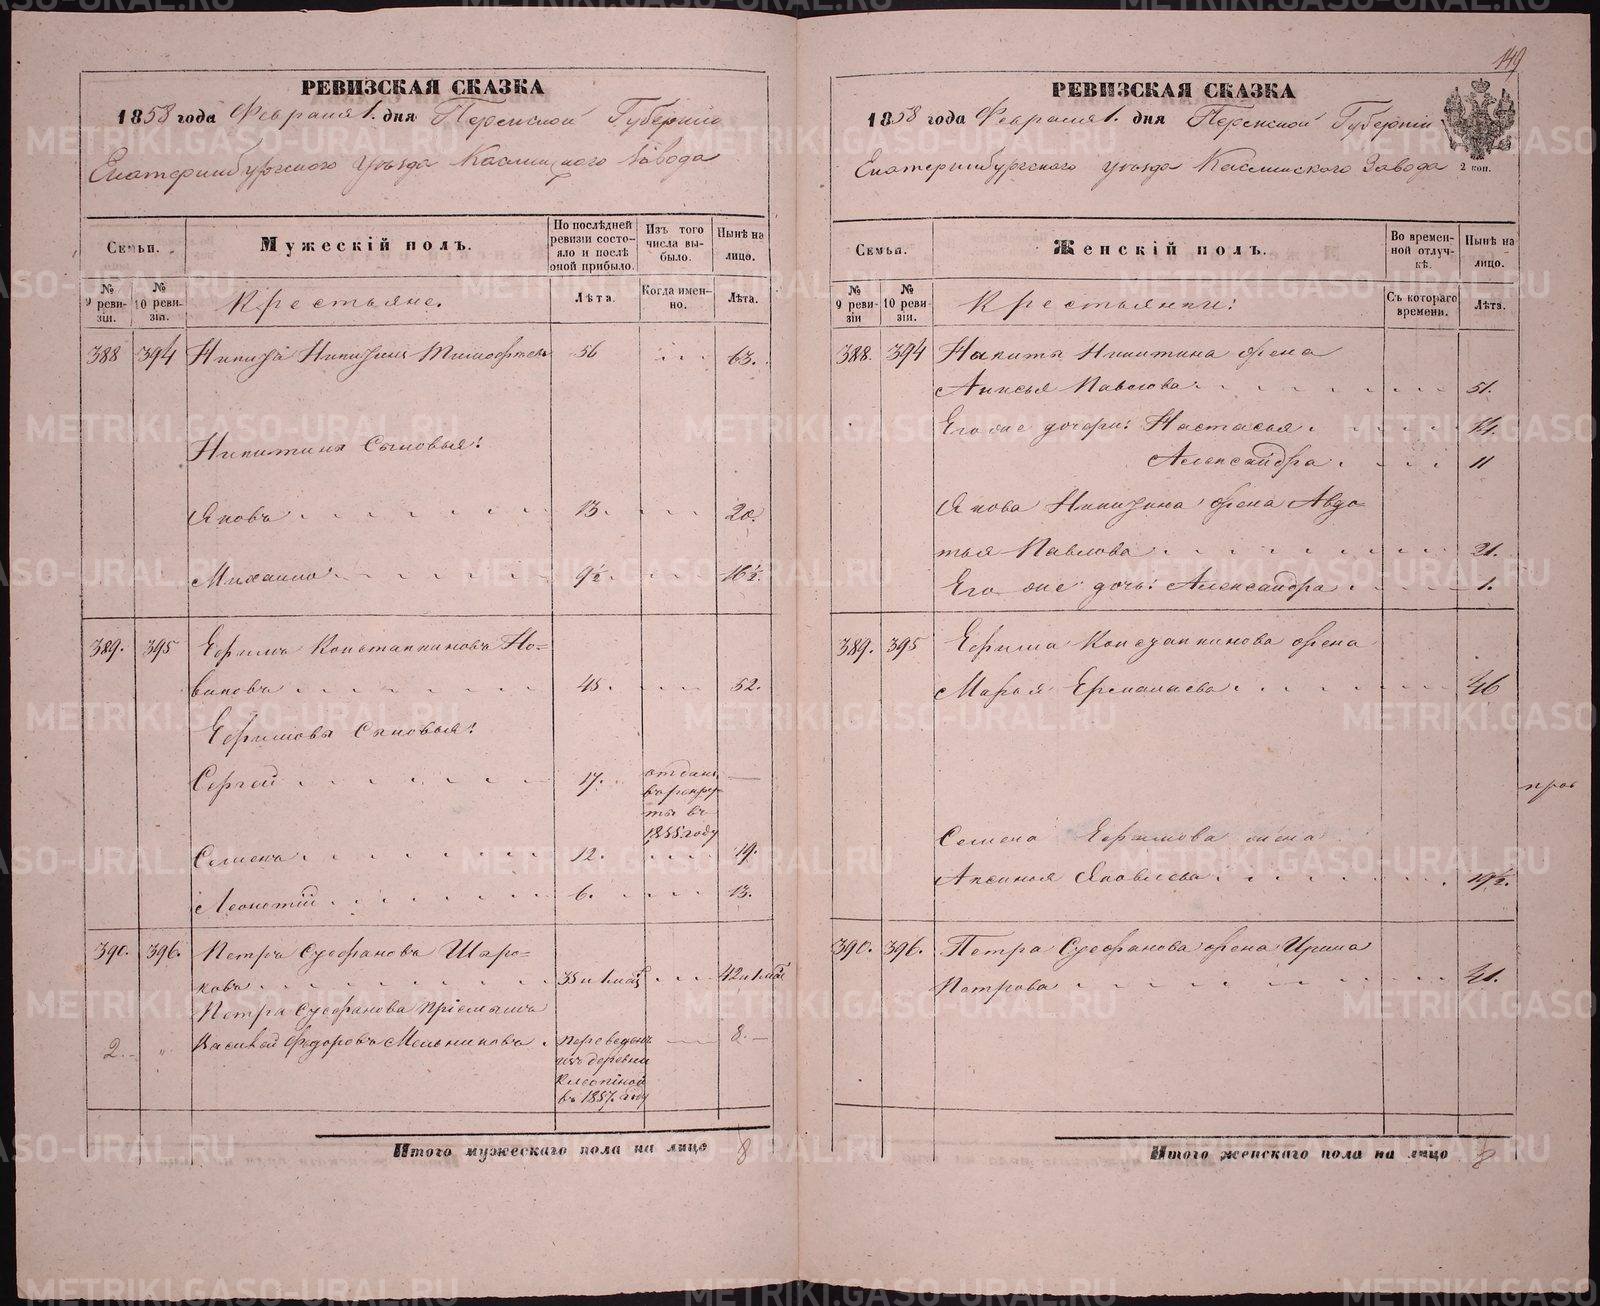 149
РЕВИЗСКАЯ СКАЗКА
1858 года Февраля 1. дня Пермской Губерніи
Екатеринбургского уѣзда Каслинского Завода
Семьи.
Мужескій полъ.
По послѣдней ревизіи состояло и послѣ оной прибыло.
Изъ того числа выбыло.
Нынѣ на лицо.
№ 9 ревизіи.
№ 10 ревизіи.
Крестьяне.
Лѣта.
Когда именно.
Лѣта.
388 394 Никита Никитинъ 56 63.
Никитины Сыновья:
Яковъ 13. 20.
Михаило 9½ 16½.
389. 395 Ефимъ Константиновъ Но-
ваковъ 45. 52.
Ефимовы Сыновья:
Сергей 17. отданъ
въ рекру-
ты въ
1855 году
Семенъ 12. 19.
Леонтій 6. 13.
390. 396. Петръ Стефановъ Широ-
ковъ 35 и 1 мѣс 42 и 1 мѣс
Петра Стефанова пріемышъ
2. Василей Федоровъ Мельниковъ переведенъ 8.
изъ деревни
въ 1857. году
Итого мужескаго пола на лицо 8
РЕВИЗСКАЯ СКАЗКА
1858 года Февраля 1. дня Пермской Губерніи
Екатеринбургского уѣзда Каслинского Завода
2 коп.
Семьи.
Женскій полъ.
Во временной отлучкѣ.
Нынѣ на лицо.
№ 9 ревизіи
№ 10 ревизіи.
Крестьянки:
Съ котораго времени.
Лѣта.
388. 394 Никиты Никитина жена
Анисья Павлова 51.
Его же дочери: Настасья 14.
Александра 11
Якова Никитина жена Авдо-
тья Павлова 21.
Его же дочь: Александра 1.
389. 395 Ефима Константинова жена
Марья Ермолаева 46
Семена Ефимова жена
Аксинья Яковлева 19½.
390. 396. Петра Стефанова жена Ирина
Петрова 41.
Итого женскаго пола на лицо 8
METRIKI.GASO-URAL.RU